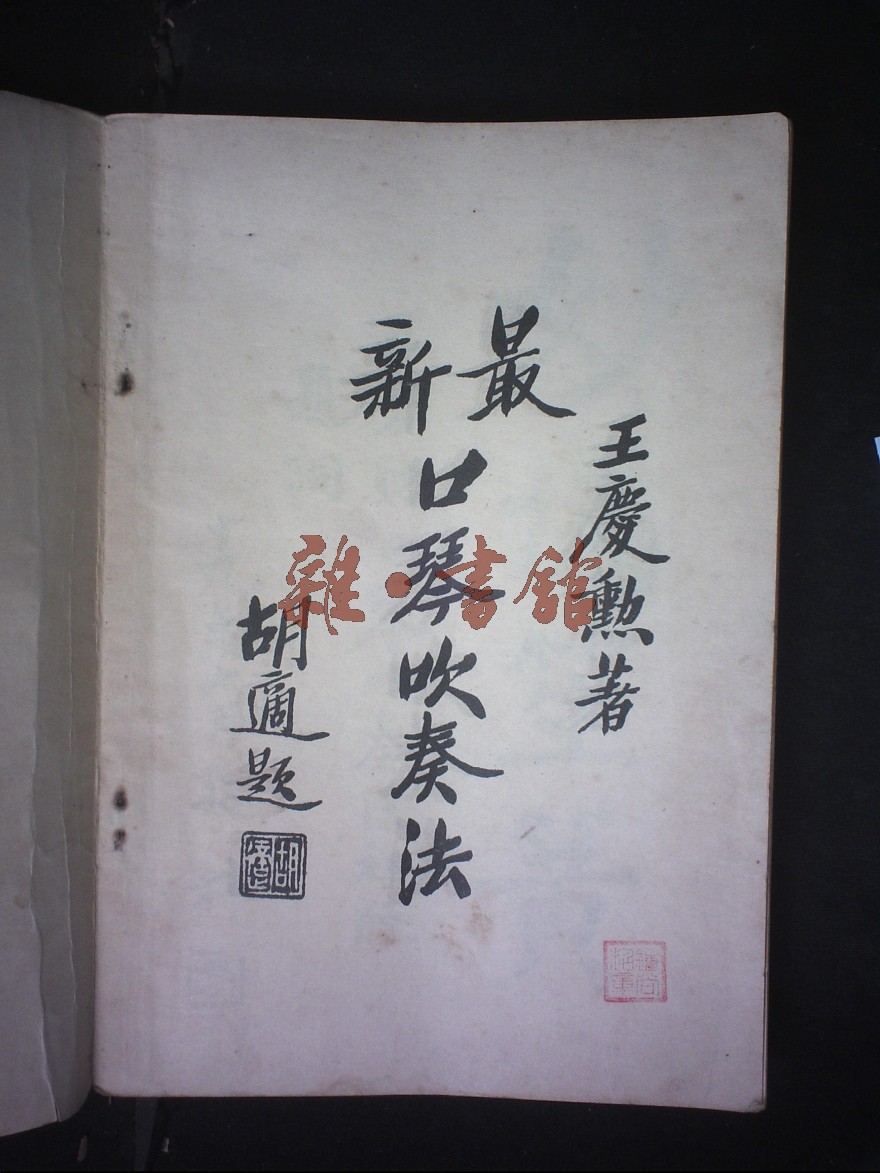 王慶勳著
最新
口琴吹奏法
胡適題
雜·書館